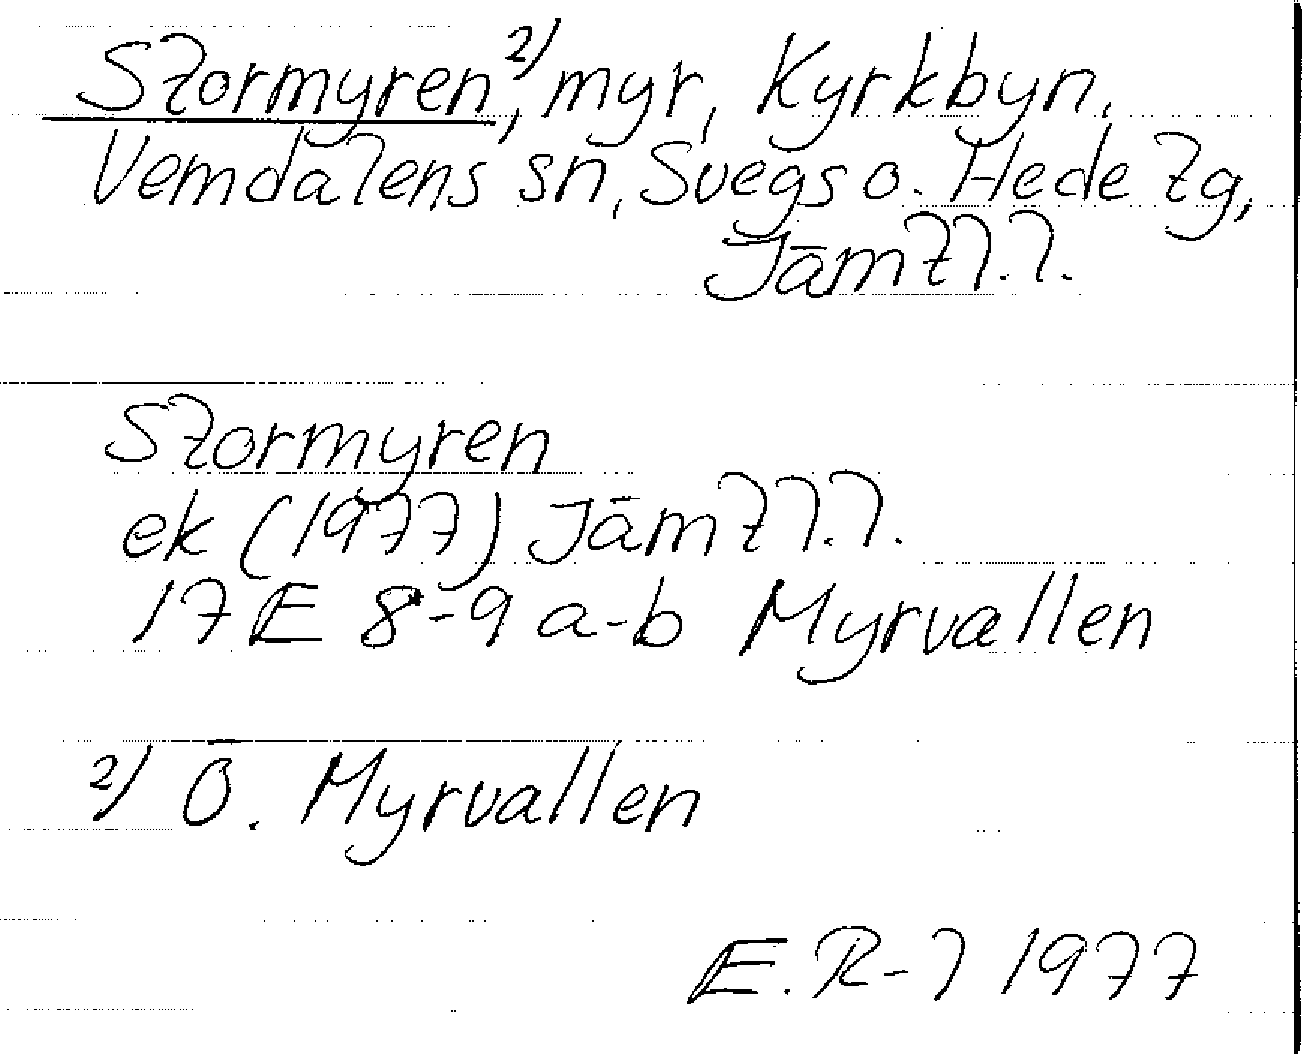 Stormyren,2) myr, Kyrkbyn,
Vemdalens sn, Svegs o. Hede tg,
Jämtl.l.
Stormyren
ek (1977) Jämtl.l.
17E 8-9 a-b Myrvallen
2) Ö. Myrvallen
E.R-l 1977